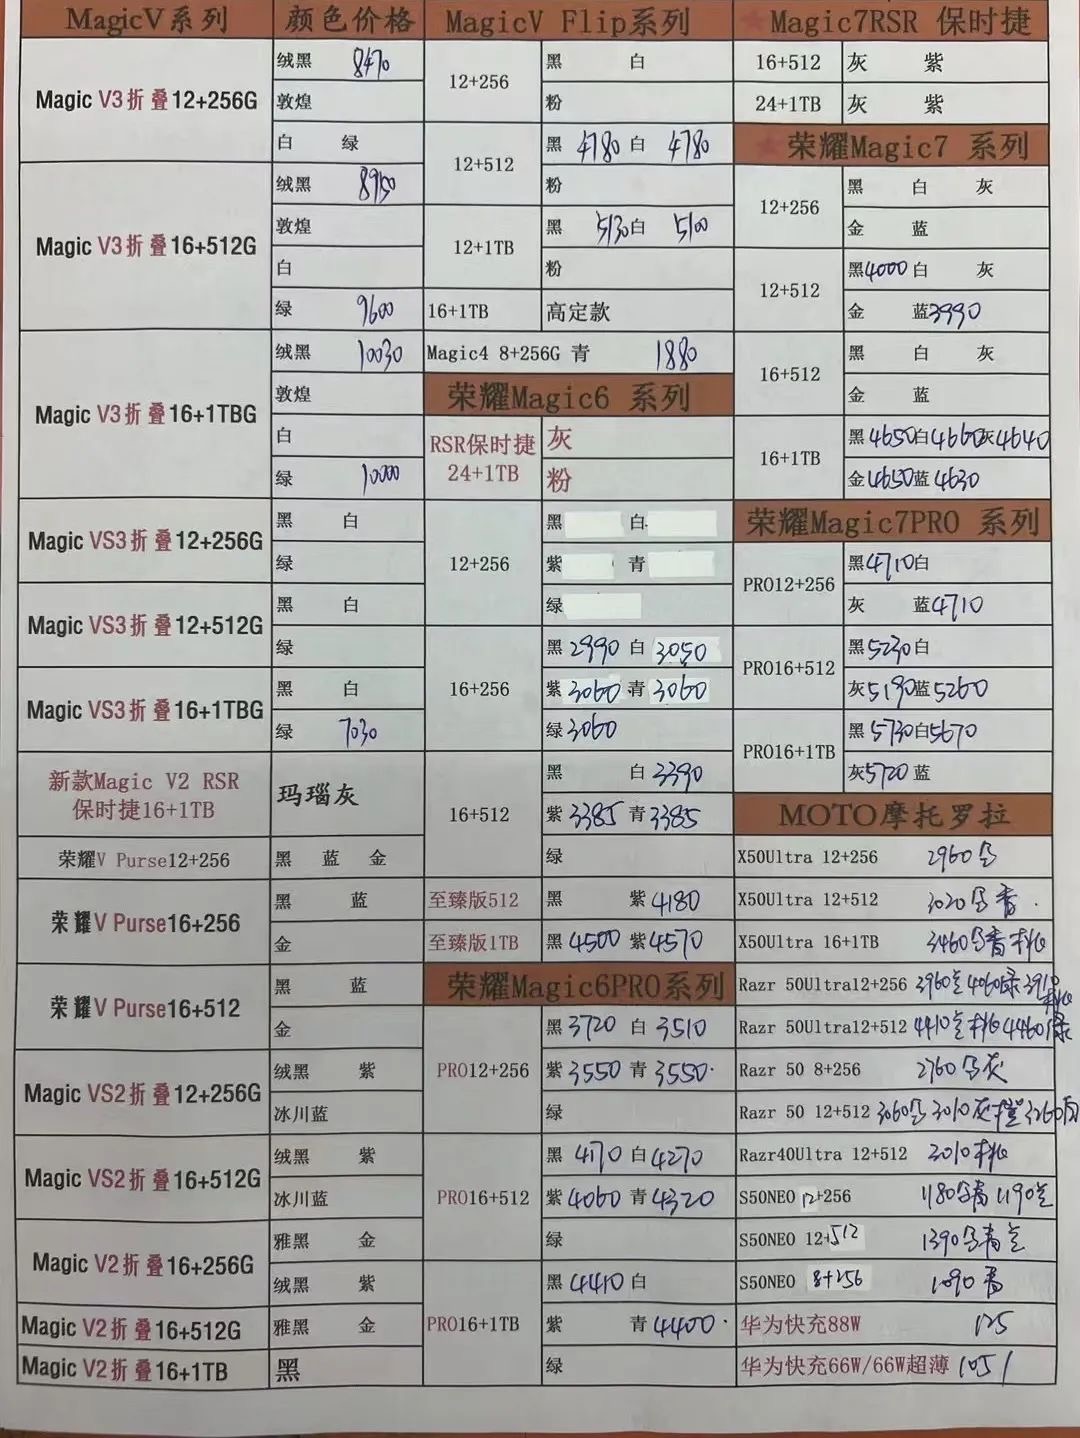 MagicV系列 颜色价格
Magic V3折叠12+256G
绒黑 8470
敦煌
白 绿
Magic V3折叠16+512G
绒黑 8950
敦煌
白
绿 9600
Magic V3折叠16+1TBG
绒黑 10030
敦煌
白
绿 10000
Magic VS3折叠12+256G
黑 白
绿
Magic VS3折叠12+512G
黑 白
绿
Magic VS3折叠16+1TBG
黑 白
绿 7030
新款Magic V2 RSR
保时捷16+1TB
玛瑙灰
荣耀V Purse12+256
黑 蓝 金
荣耀V Purse16+256
黑 蓝
金
荣耀V Purse16+512
黑 蓝
金
Magic VS2折叠12+256G
绒黑 紫
冰川蓝
Magic VS2折叠16+512G
绒黑 紫
冰川蓝
Magic V2折叠16+256G
雅黑 金
绒黑 紫
Magic V2折叠16+512G
雅黑 金
Magic V2折叠16+1TB
黑
MagicV Flip系列
12+256
黑 白
粉
12+512
黑 4780 白 4780
粉
12+1TB
黑 5130 白 5100
粉
16+1TB 高定款
Magic4 8+256G 青 1880
荣耀Magic6 系列
RSR保时捷
24+1TB
灰
粉
12+256
黑 白
紫 青
绿
16+256
黑 2990 白 3050
紫 3060 青 3060
绿 3060
16+512
黑 白 3390
紫 3385 青 3385
绿
至臻版512 黑 紫 4180
至臻版1TB 黑 4500 紫 4570
荣耀Magic6PRO系列
PRO12+256
黑 3720 白 3510
紫 3550 青 3550
绿
PRO16+512
黑 4170 白 4270
紫 4060 青 4320
绿
PRO16+1TB
黑 4410 白
紫 青 4400
绿
★Magic7RSR 保时捷
16+512 灰 紫
24+1TB 灰 紫
★荣耀Magic7 系列
12+256
黑 白 灰
金 蓝
12+512
黑 4000 白 灰
金 蓝 3990
16+512
黑 白 灰
金 蓝
16+1TB
黑 4650 白 4660 灰 4640
金 4650 蓝 4630
荣耀Magic7PRO 系列
PRO12+256
黑 4710 白
灰 蓝 4710
PRO16+512
黑 5230 白
灰 5190 蓝 5260
PRO16+1TB
黑 5730 白 5670
灰 5720 蓝
MOTO摩托罗拉
X50Ultra 12+256 2960
X50Ultra 12+512 3020
X50Ultra 16+1TB 3460
Razr 50Ultra12+256 3960 4060绿
Razr 50Ultra12+512 4410 4460绿
Razr 50 8+256 2760 灰
Razr 50 12+512 3060 3010灰 3260
Razr40Ultra 12+512 3010
S50NEO 12+256 1180 青 1190
S50NEO 12+512 1390 青
S50NEO 8+256 1090 青
华为快充88W 125
华为快充66W/66W超薄 105